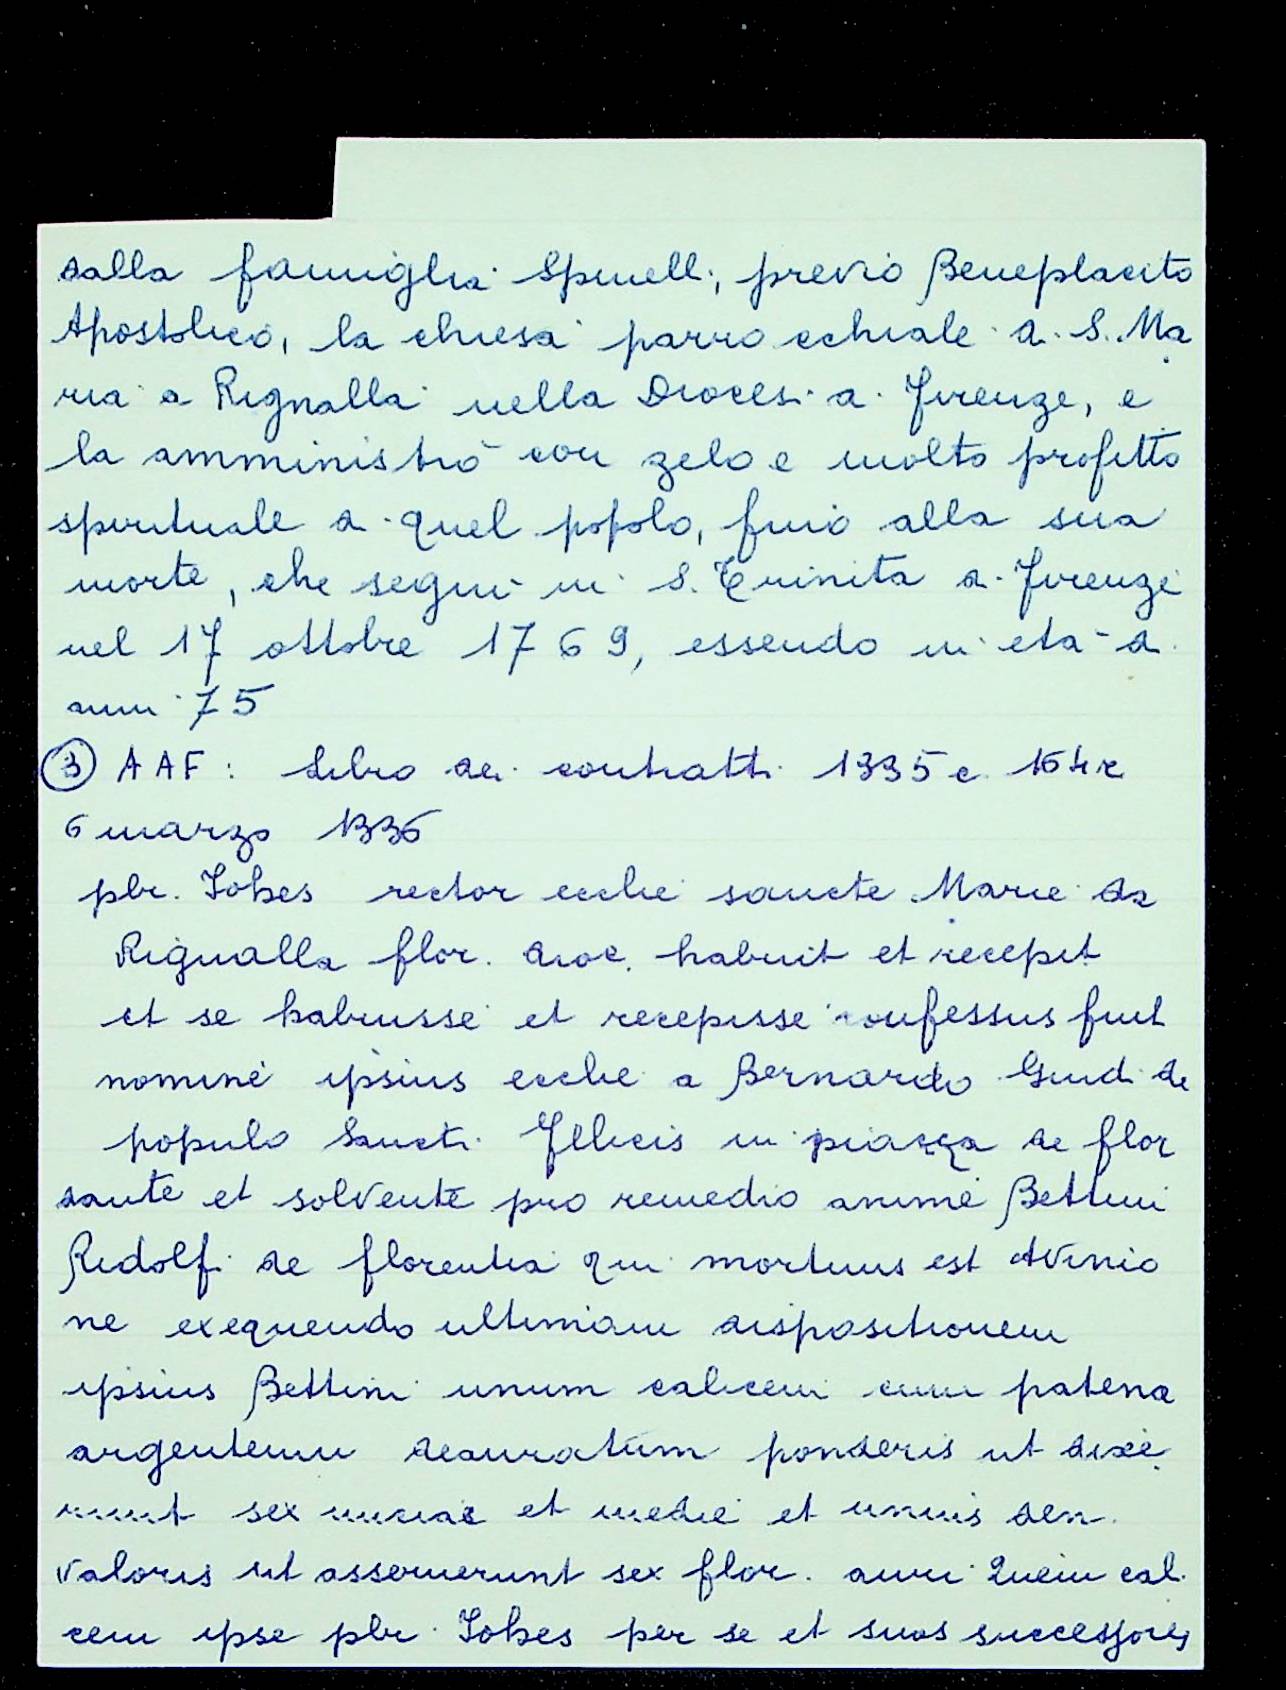 dalla famiglia Spinelli, previo Beneplacito
Apostolico, la chiesa parrocchiale di S. Ma
ria a Rignalla nella Diocesi di Firenze, e
la amministrò con zelo e molto profitto
spirituale di quel popolo, fino alla sua
morte, che seguì in S. Trinita di Firenze
nel 17 ottobre 1769, essendo in età di
anni 75
③ AAF: Libro dei contratti 1335 c 164r
6 marzo 1336
pbr. Iohes rector ecclie sancte Marie da
Rignalla flor. dioc. habuit et recepit
et se habuisse et recepisse confessus fuit
nomine ipsius ecclie a Bernardo Guidi de
populo Sancti Felicis in piazza de flor
dante et solvente pro remedio anime Bettini
Ridolfi de florentia qui mortuus est Avinio
ne exequendo ultimam dispositionem
ipsius Bettini unum calicem cum patena
argenteum deauratum ponderis ut dixe
runt sex unciae et medie et unius den.
valoris ut asseruerunt sex flor. auri Quem cal
cem ipse pbr. Iohes per se et suos successores